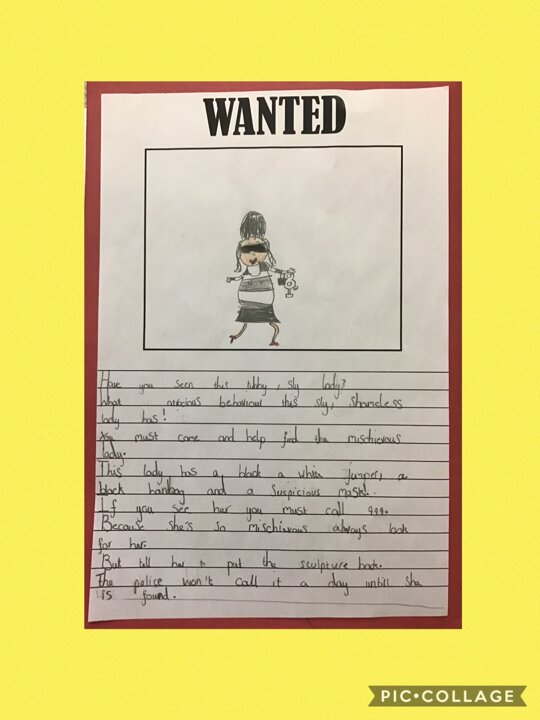 WANTED
Have you seen this tubby, sly lady?
What behaviour this sly, shameless
lady has!
You must come and help find the mischievous
lady.
This lady has a black a white jumper, a
black hanbag and a suspicious mask.
If you see her you must call 999.
Because she's so mischievous always look
for her.
But tell her to put the sculpture back.
The police won't call it a day untill she
is found.
PIC•COLLAGE